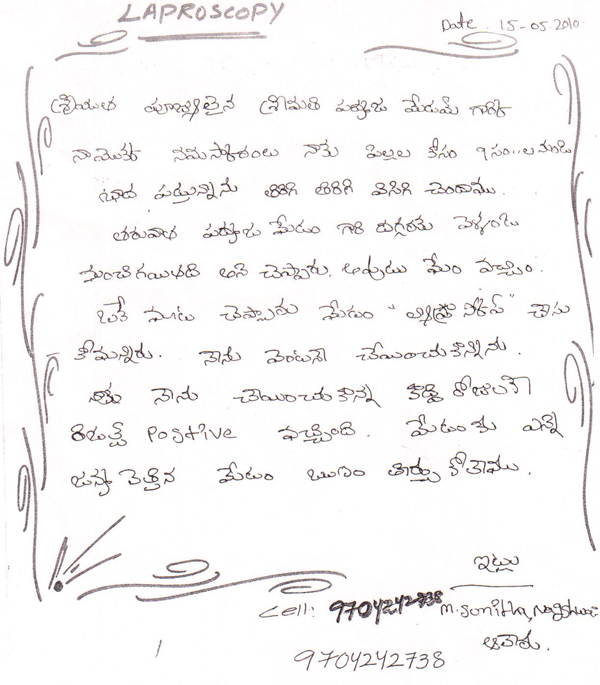 LAPROSCOPY
Date. 15-05 2010
శ్రీయుత పూజ్యులైన శ్రీమతి పద్మజ మేడమ్ గారికి
నామొక్క నమస్కారంలు నాకు పిల్లల కోసం 9 సం..ల నుండి
బాద పడ్తున్నాను తిరిగి తిరిగి విసిగి చెందాము.
తరువాత పద్మజ మేడం గారి దగ్గరకు వెళ్ళండి
మంచిగయితది అని చెప్పారు. అప్పుడు మేం వచ్చాం.
ఒకే మాట చెప్పారు మేడం " " చేసు
కోమన్నారు. నాను వెంటనే చేయించుకొన్నాను.
నాకు నాను చేయించుకొన్న కొద్ది రోజులకే
రిజల్ట్ Positive వచ్చింది. మేడంకు ఎన్ని
జన్మ లెత్తిన మేడం ఋణం తీర్చు కోలేము.
ఇట్లు
Cell: 9704242738 M. Sunitha,
9704242738